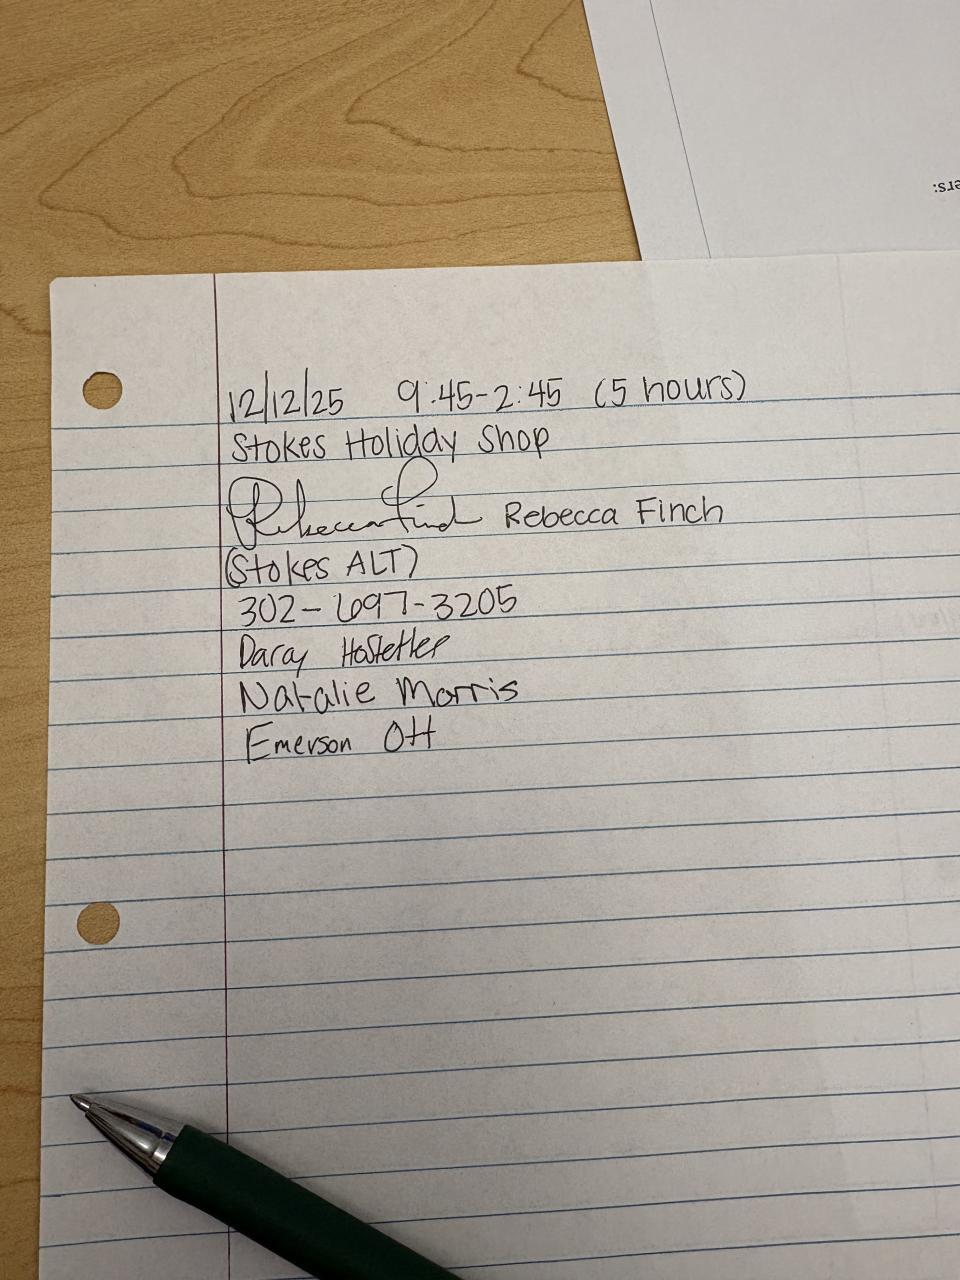 ers:
12/12/25 9:45-2:45 (5 hours)
Stokes Holiday Shop
Rebecca Finch Rebecca Finch
(Stokes ALT)
302-697-3205
Darcy Hostetler
Natalie Morris
Emerson Ott